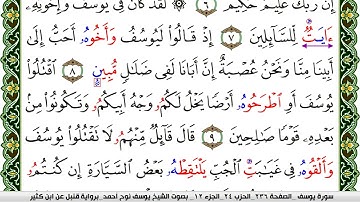 إِنَّ رَبَّكَ عَلِيمٌ حَكِيمٌ ٦ لَّقَدْ كَانَ فِى يُوسُفَ وَإِخْوَتِهِۦ
ءَايَتٌ لِّلسَّآئِلِينَ ٧ إِذْ قَالُوا۟ لَيُوسُفُ وَأَخُوهُ أَحَبُّ إِلَىٰٓ
أَبِينَا مِنَّا وَنَحْنُ عُصْبَةٌ إِنَّ أَبَانَا لَفِى ضَلَٰلٍ مُّبِينٍ ٨ اقْتُلُوا۟
يُوسُفَ أَوِ اطْرَحُوهُ أَرْضًا يَخْلُ لَكُمُۥ وَجْهُ أَبِيكُمُۥ وَتَكُونُوا۟ مِنۢ
بَعْدِهِۦ قَوْمًا صَٰلِحِينَ ٩ قَالَ قَآئِلٌ مِّنْهُمُۥ لَا تَقْتُلُوا۟ يُوسُفَ
وَأَلْقُوهُ فِى غَيَٰبَتِ الْجُبِّ يَلْتَقِطْهُ بَعْضُ السَّيَّارَةِ إِن كُنتُمُۥ
سورة يوسف_ الصفحة ٢٣٦_ الحزب ٢٤_ الجزء ١٢_ بصوت الشيخ يوسف نوح أحمد_ برواية قنبل عن ابن كثير